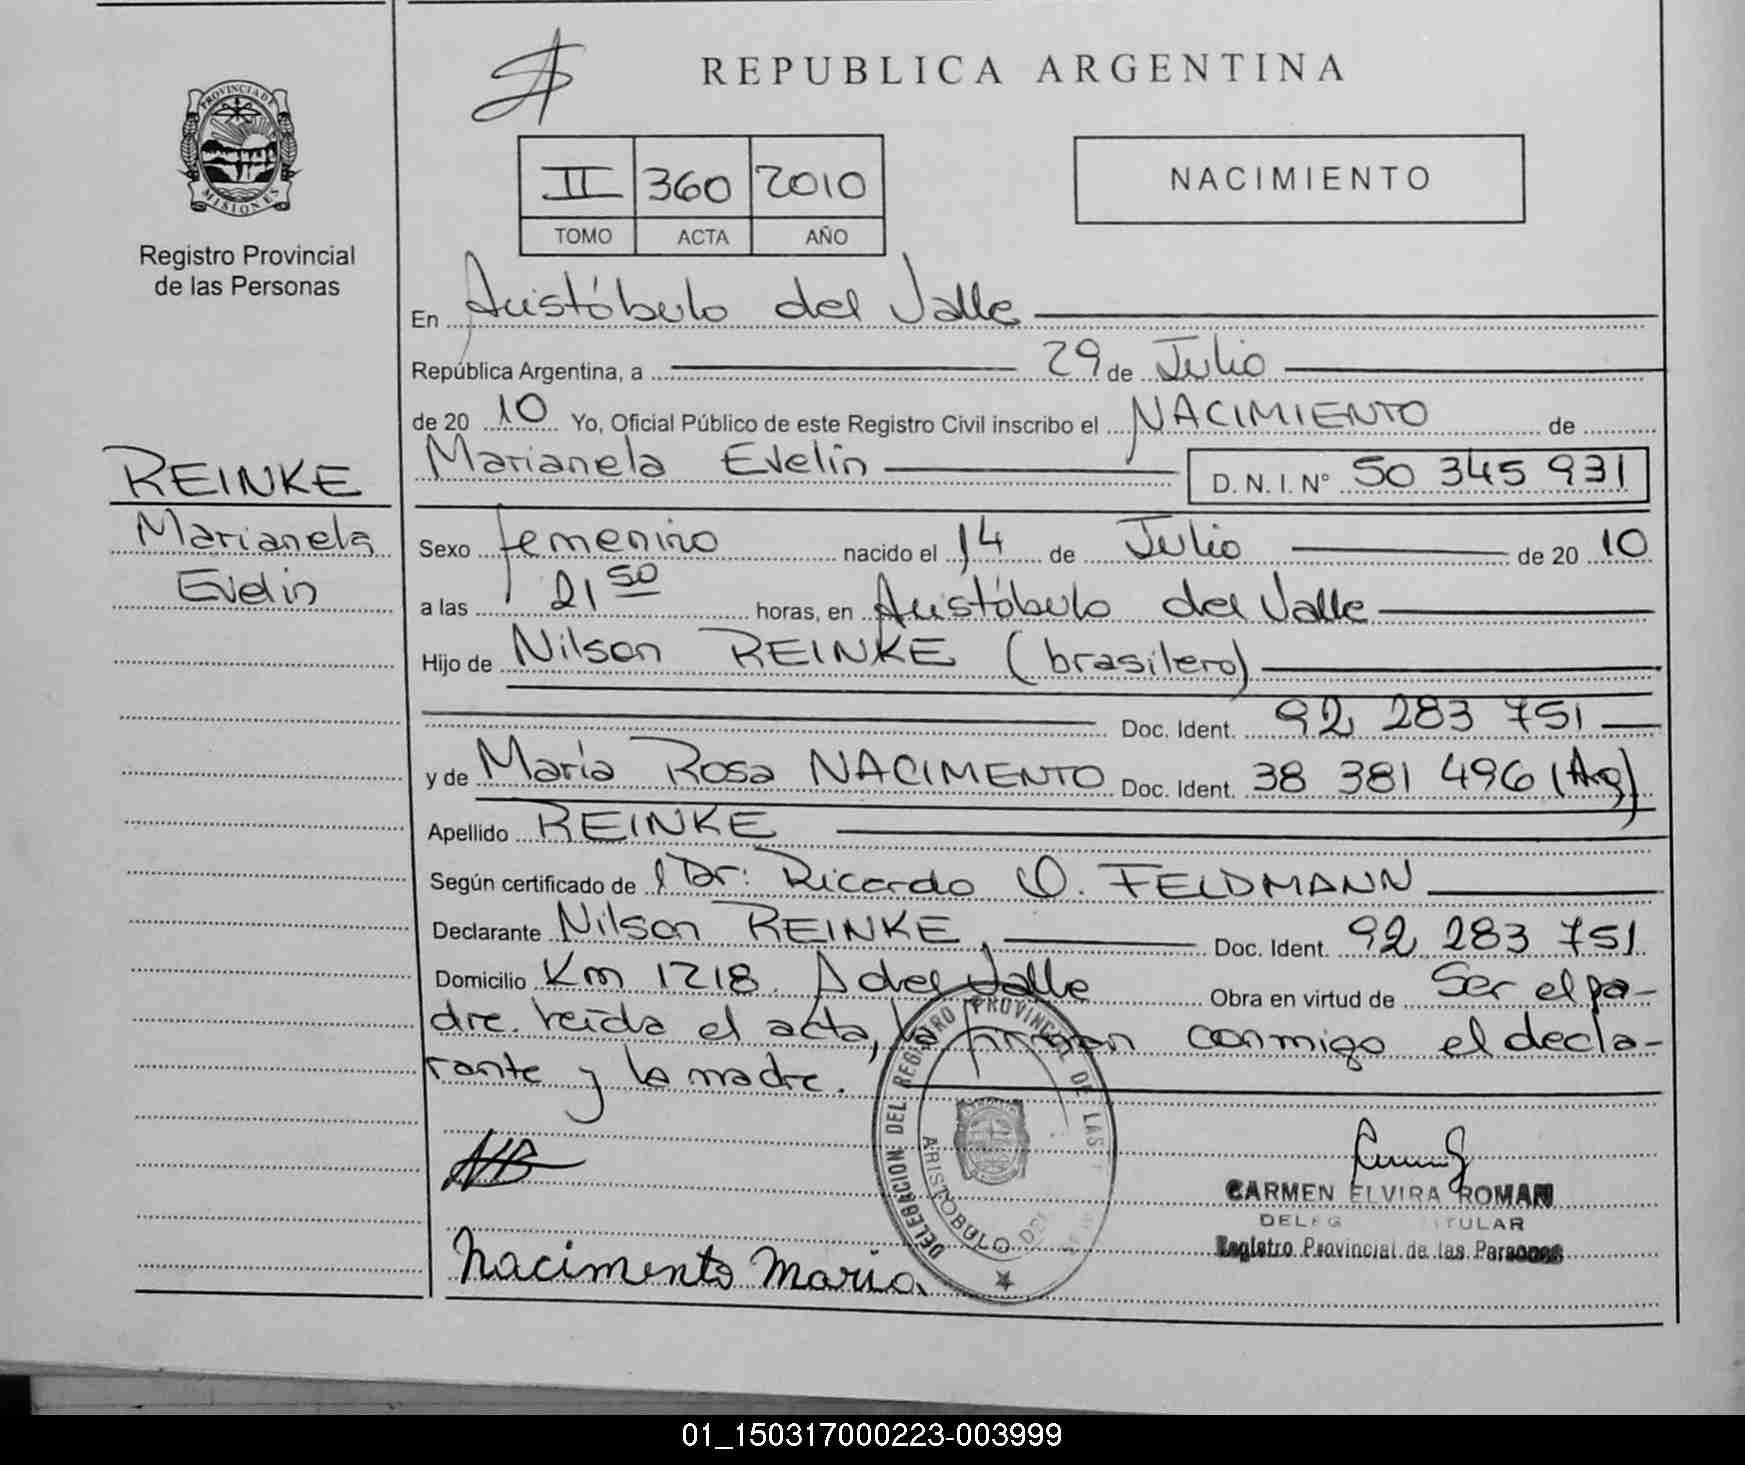 REPUBLICA ARGENTINA
PROVINCIA DE
MISIONES
Registro Provincial
de las Personas
II 360 2010
TOMO ACTA AÑO
NACIMIENTO
En Aristóbulo del Valle
República Argentina, a 29 de Julio
de 20 10 Yo, Oficial Público de este Registro Civil inscribo el NACIMIENTO de
Marianela Evelin D.N.I. Nº 50 345 931
REINKE
Marianela
Evelin
Sexo femenino nacido el 14 de Julio de 20 10
a las 21 50 horas, en Aristóbulo del Valle
Hijo de Nilson REINKE (brasilero)
Doc. Ident. 92 283 751
y de María Rosa NACIMENTO Doc. Ident. 38 381 496 (Arg)
Apellido REINKE
Según certificado de Dr: Ricardo O. FELDMANN
Declarante Nilson REINKE, Doc. Ident. 92 283 751
Domicilio Km 1218. A del Valle Obra en virtud de Ser el pa-
dre. leída el acta, la firman conmigo el decla-
rante y la madre.
DELEGACION DEL REGISTRO PROVINCIAL DE LAS
ARISTOBULO DEL
CARMEN ELVIRA ROMAN
TITULAR
Registro Provincial de las Personas
Nacimento Maria
01_150317000223-003999